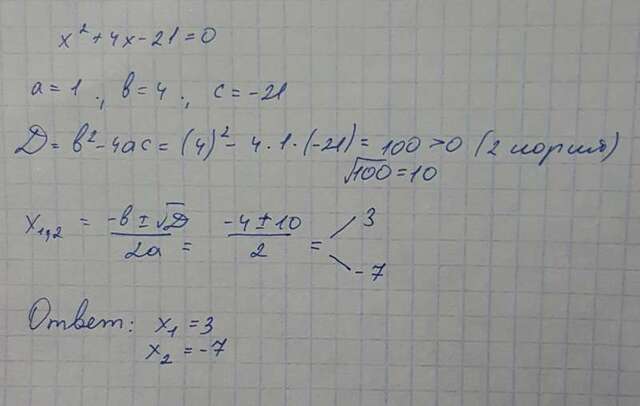 x² + 4x - 21 = 0
a = 1 ; b = 4 ; c = -21
D = b² - 4ac = (4)² - 4 · 1 · (-21) = 100 > 0 (2 корня)
√100 = 10
x₁,₂ = (-b ± √D) / 2a = (-4 ± 10) / 2 = 3
-7
Ответ: x₁ = 3
x₂ = -7